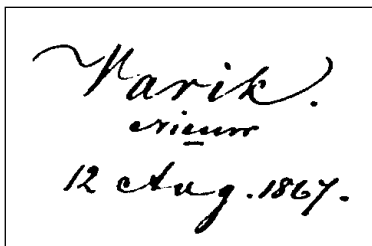 Varik.
Nieuw
12 Aug. 1867.